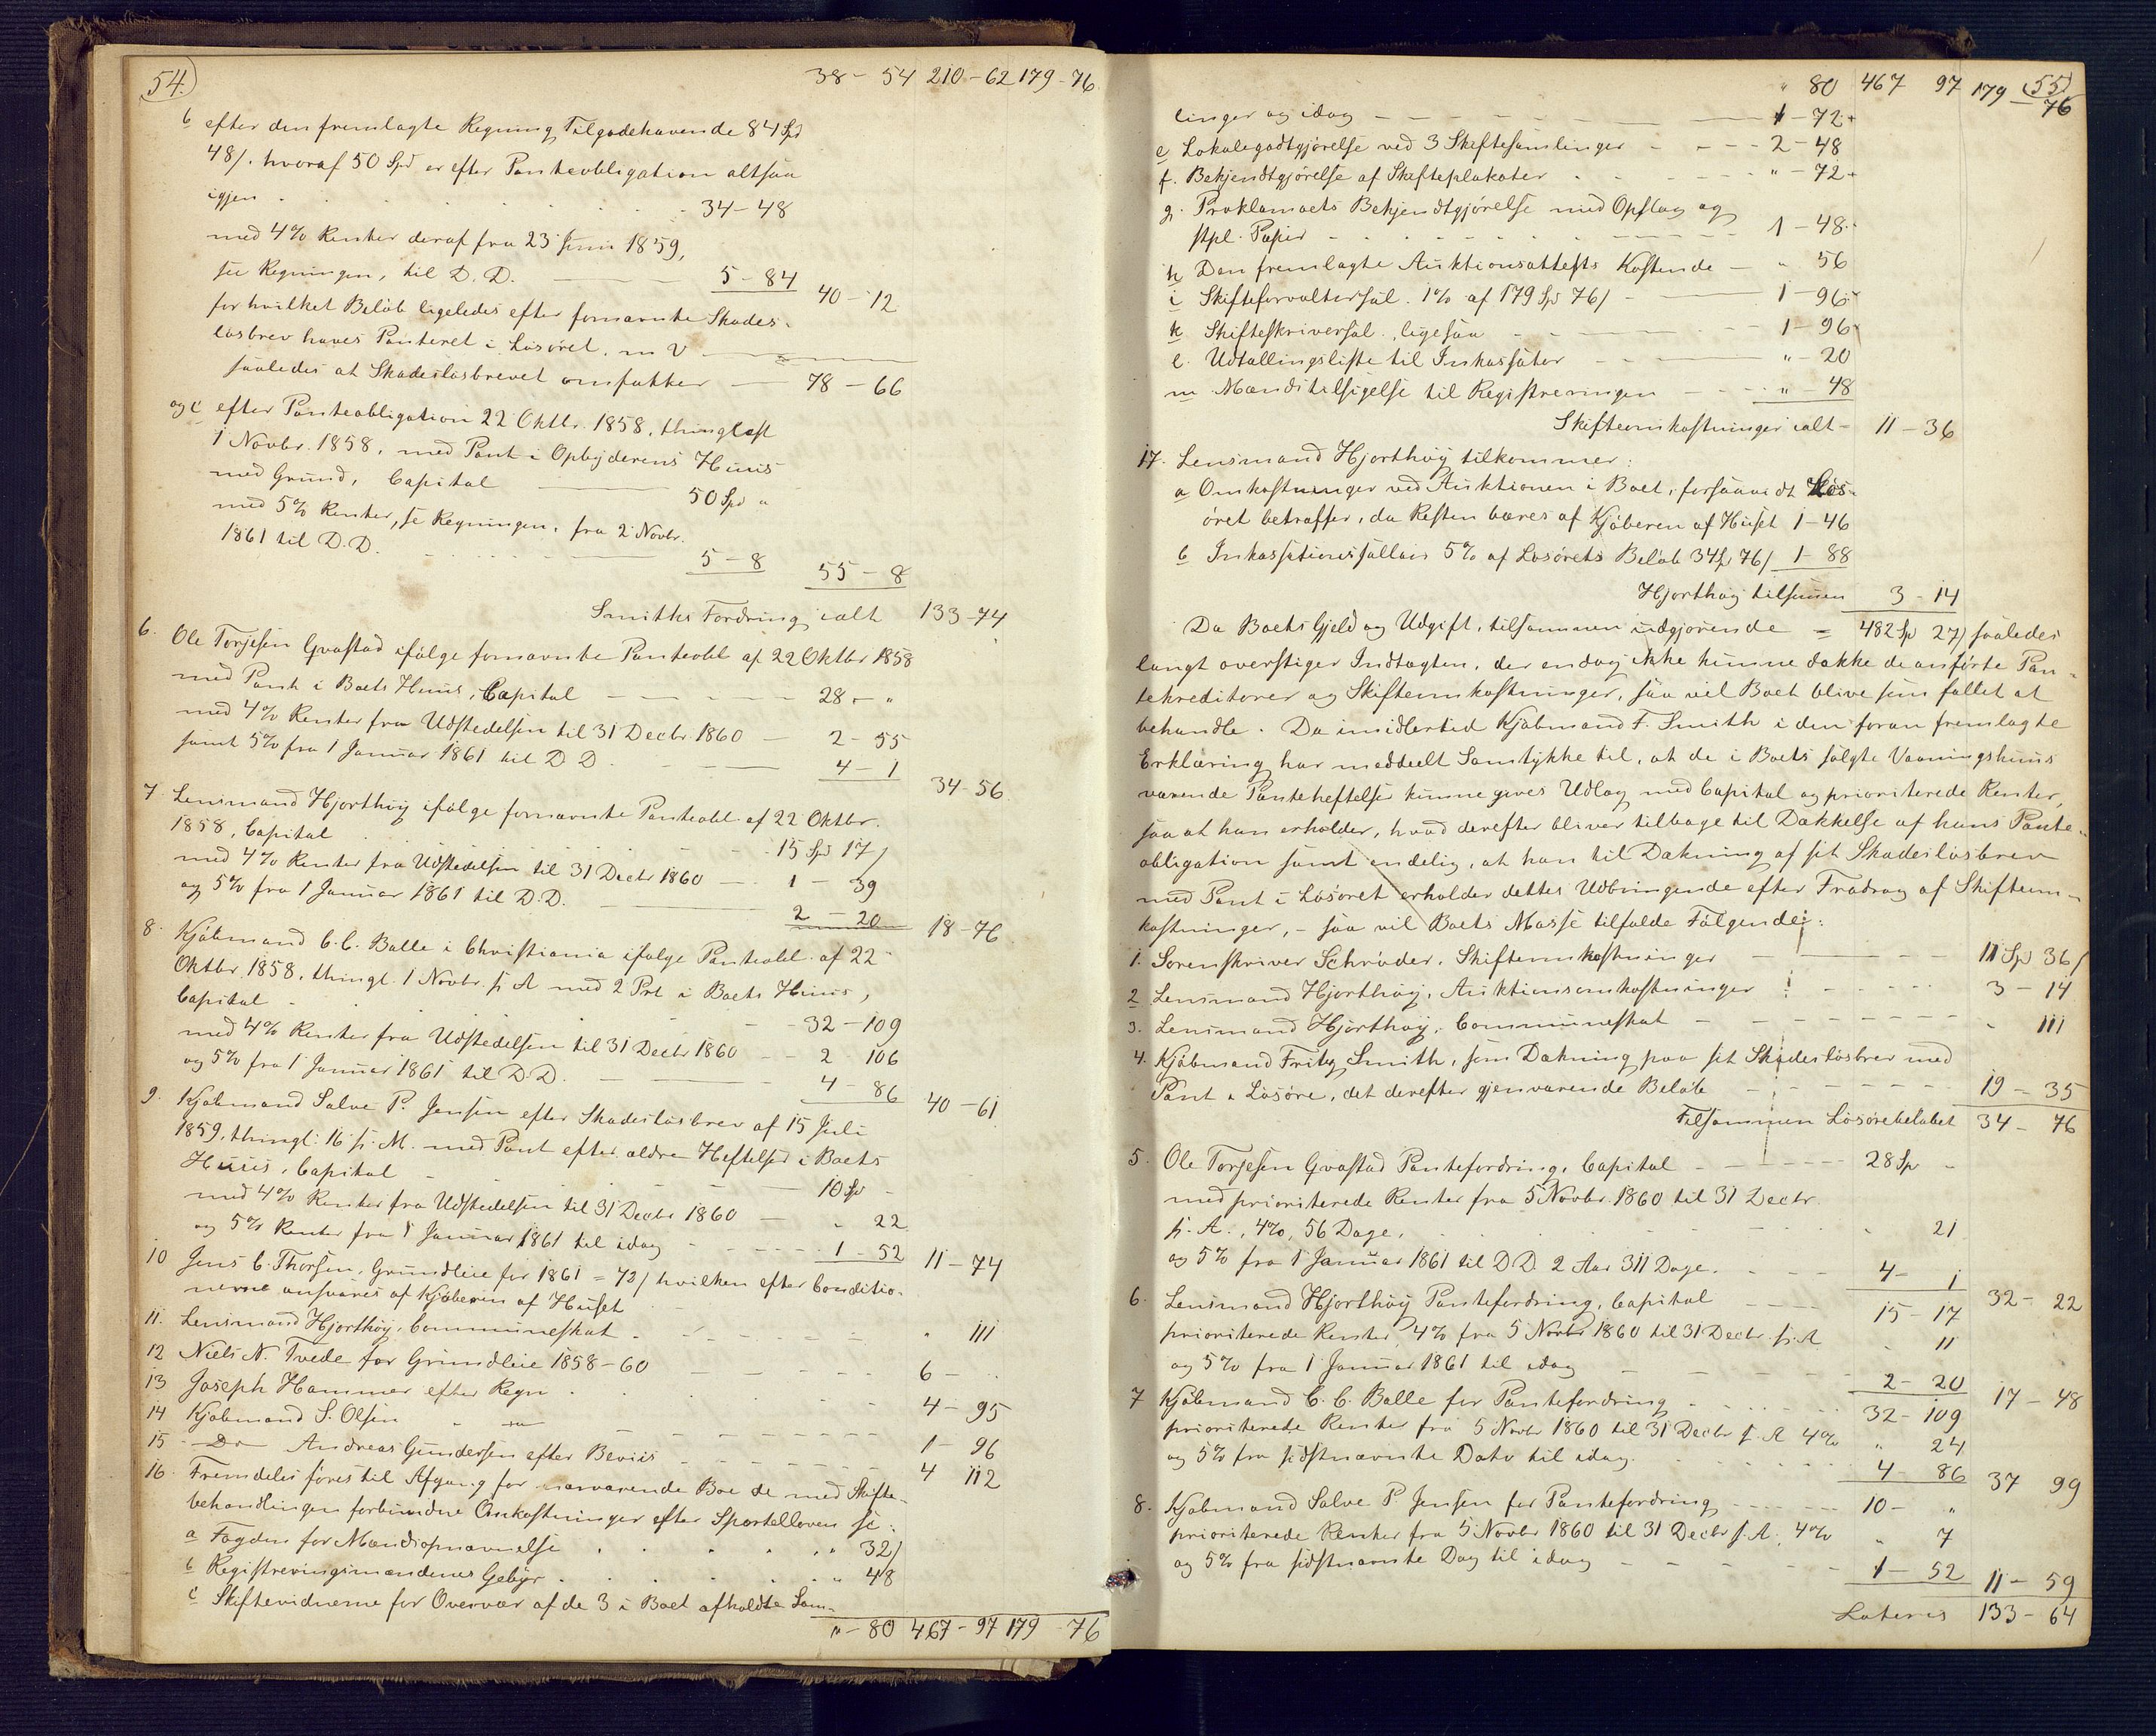 54.
38 - 54 210 - 62 179 - 76
b efter den fremlagte Regning Tilgodehavende 84 Spd
48/. hvoraf 50 Spd er efter Panteobligation altsaa
igjen 34 - 48
med 4% Renter deraf fra 23 Juni 1859,
see Regningen, til D. D. 5 - 84
40 - 12
for hvilket Beløb ligeledes efter fornævnte Skades-
løsbrev haves Panteret i Løsøret. m V
saaledes at Skadesløsbrevet omfatter 78 - 66
og c efter Panteobligation 22 Oktbr. 1858, thinglæst
1 Novbr. 1858, med Pant i Opbyderens Huus
med Grund, Capital 50 Spd "
med 5% Renter, se Regningen, fra 2 Novbr.
1861 til D.D. 5 - 8 55 - 8
Smiths Fordring ialt 133 - 74
6. Ole Torjesen Gvastad ifølge fornævnte Panteobl af 22 Oktbr 1858
med Pant i Boets Huus, Capital 28 - "
med 4% Renter fra Udstedelsen til 31 Decbr. 1860 2 - 55
samt 5% fra 1 Januar 1861 til D D. 4 - 1
34 - 56.
7. Lensmand Hjorthøy ifølge fornævnte Panteobl. af 22 Oktbr.
1858, Capital 15 Spd 17/
med 4% Renter fra Udstedelsen til 31 Decbr 1860 1 - 39
og 5% fra 1 Januar 1861 til D.D. 2 - 20 18 - 76
8. Kjøbmand C. C. Balle i Christiania ifølge Panteobl. af 22
Oktbr. 1858, thingl. 1 Novbr. s. A med 2 Prt i Boets Huus,
Capital 32 - 109
med 4% Renter fra Udstedelsen til 31 Decbr 1860 2 106
og 5% fra 1 Januar 1861 til D.D. 4 - 86 40 - 61
9. Kjøbmand Salve P. Jensen efter Skadesløsbrev af 15 Juli
1859, thingl. 16 s. M. med Pant efter ældre Heftelser i Boets
Huus, Capital 10 Spd -
med 4% Renter fra Udstedelsen til 31 Decbr 1860 " 22
og 5% Renter fra 1 Januar 1861 til idag 1 - 52 11 - 74
10 Jens C. Thorsen, Grundleie for 1861 = 72/ hvilken efter Conditio-
nerne ansvares af Kjøberen af Huset
11. Lensmand Hjorthøy, Communeskat " 111
12 Niels N. Tvede for Grundleie 1858 - 60 6 -
13 Joseph Hammer efter Regn 4 - 95
14 Kjøbmand S. Olsen 1 - 96
15 - Do - Andreas Gundersen efter Beviis 4 112
16. Fremdeles føres til Afgang for nærværende Boe de med Skifte-
behandlingen forbundne Omkostninger efter Sportelloven sc:
a Fogden for Mændsopnævnelse " 32/
b Registreringsmændenes Gebyr " 48
c Skiftevidnerne for Overvær af de 3 i Boet afholdte Sam-
" - 80 467 - 97 179 - 76
" 80 467 97 179 - 76
(55)
linger og idag 1 - 72
e Lokalegodtgjørelse ved 3 Skiftesamlinger 2 - 48
f. Bekjendtgjørelse af Skifteplakater " - 72
g. Proklamaets Bekjendtgjørelse med Opslag og
stpl. Papir 1 - 48
h Den fremlagte Auktionsattests Kostende " 56
i Skifteforvaltersal. 1% af 179 Spd 76/ 1 - 96
k Skifteskriversal. ligesaa 1 - 96
l. Udtallingsliste til Inkassator " - 20
m Mændstilsigelse til Registreringen " - 48
Skifteomkostninger ialt - 11 - 36
17. Lensmand Hjorthøy tilkommer:
a Omkostninger ved Auktionen i Boet, forsaavidt Løs-
øret betræffer, da Resten bæres af Kjøberen af Huset 1 - 46
b Inkassationssallair 5% af Løsørets Beløb 34 Sp 76/ 1 - 88
Hjorthøy tilsammen 3 - 14
Da Boets Gjeld og Udgift, tilsammen udgjørende = 482 Sp 27/ saaledes
langt overstiger Indtægten, der endog ikke kunne dække de anførte Pan-
tekreditorer og Skifteomkostninger, saa vil Boet blive som fallit at
behandle. Da imidlertid Kjøbmand F. Smith i den foran fremlagte
Erklæring har meddeelt Samtykke til, at de i Boets solgte Vaaningshuus
værende Panteheftelser kunne gives Udlæg med Capital og prioriterede Renter,
saa at han erholder, hvad derefter bliver tilbage til Dækkelse af hans Pante-
obligation samt endelig, at han til Dækning af sit Skadesløsbrev
med Pant i Løsøret erholder dettes Udbringende efter Fradrag af Skifteom-
kostninger, - saa vil Boets Masse tilfalde Følgende:
1. Sorenskriver Schrøder, Skifteomkostninger 11 Spd 36/
2 Lensmand Hjorthøy, Auktionsomkostninger 3 - 14
3. Lensmand Hjorthøy, Communeskat " 111
4. Kjøbmand Fritz Smith, som Dækning paa sit Skadesløsbrev med
Pant i Løsøre, det derefter gjenværende Beløb 19 - 35
Tilsammen Løsørebeløbet 34 - 76
5. Ole Torjesen Gvastad Pantefordring, Capital 28 Sp "
med prioriterede Renter fra 5 Novbr. 1860 til 31 Decbr.
s. A., 4%, 56 Dage, " 21
og 5% fra 1 Januar 1861 til D.D. 2 Aar 311 Dage. 4 - 1
32 - 22
6. Lensmand Hjorthøy Pantefordring, Capital 15 - 17
prioriterede Renter 4% fra 5 Novbr 1860 til 31 Decbr. s. A " 11
og 5% fra 1 Januar 1861 til idag 2 - 20 17 - 48
7 Kjøbmand C. C. Balle for Pantefordring 32 - 109
prioriterede Renter fra 5 Novbr 1860 til 31 Decbr s. A 4% " 24
og 5% fra sidstnævnte Dato til idag. 4 - 86 37 99
8. Kjøbmand Salve P. Jensen for Pantefordring 10 - "
prioriterede Renter fra 5 Novbr 1860 til 31 Decbr s. A. 4% " 7
og 5% fra sidstnævnte Dag til idag 1 - 52 11 - 59
Lateris 133 - 64